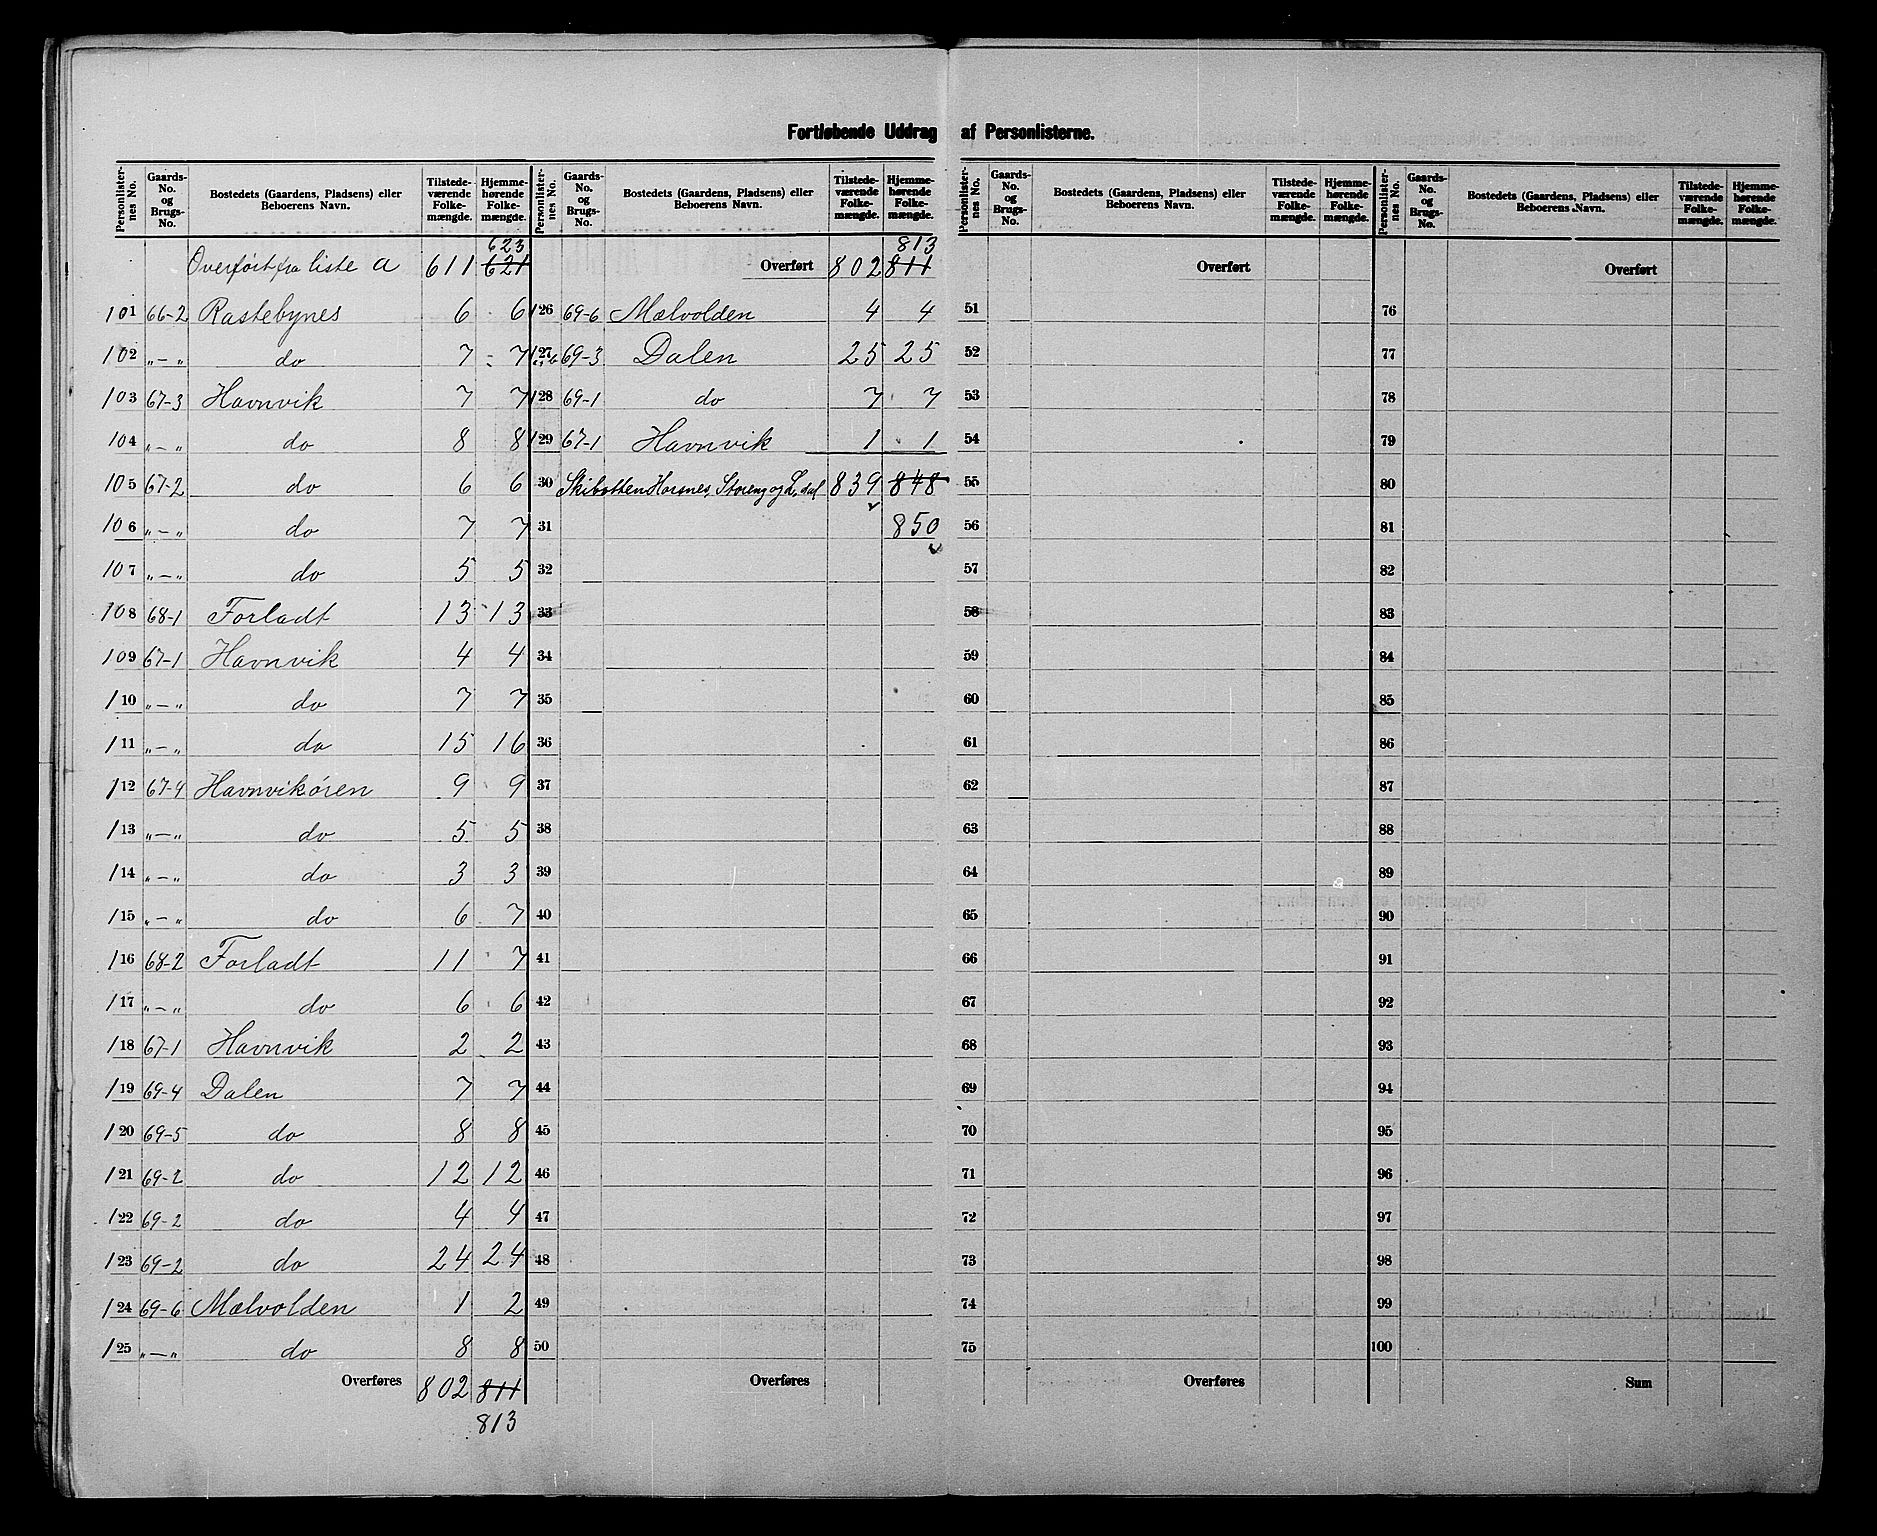 Fortløbende Uddrag af Personlisterne.
Personlister-nes No. | Gaards-No. og Brugs-No. | Bostedets (Gaardens, Pladsens) eller Beboerens Navn. | Tilstede-værende Folke-mængde. | Hjemme-hørende Folke-mængde.
623
Overført fra liste a 611 621
101 66-2 Rastebynes 6 6
102 „-„ do 7 7
103 67-3 Havnvik 7 7
104 „-„ do 8 8
105 67-2 do 6 6
106 „-„ do 7 7
107 „-„ do 5 5
108 68-1 Forladt 13 13
109 67-1 Havnvik 4 4
110 „-„ do 7 7
111 „-„ do 15 16
112 67-4 Havnvikøren 9 9
113 „-„ do 5 5
114 „-„ do 3 3
115 „-„ do 6 7
116 68-2 Forladt 11 7
117 „-„ do 6 6
118 67-1 Havnvik 2 2
119 69-4 Dalen 7 7
120 69-5 do 8 8
121 69-2 do 12 12
122 69-2 do 4 4
123 69-2 do 24 24
124 69-6 Mælvolden 1 2
125 „-„ do 8 8
Overføres 802 811
813
Personlister-nes No. | Gaards-No. og Brugs-No. | Bostedets (Gaardens, Pladsens) eller Beboerens Navn. | Tilstede-værende Folke-mængde. | Hjemme-hørende Folke-mængde.
813
Overført 802 811
126 69-6 Mælvolden 4 4
127 69-3 Dalen 25 25
128 69-1 do 7 7
129 67-1 Havnvik 1 1
30 Skibotten Horsnes, Storeng og L. dal 839 848
31 850
32
33
34
35
36
37
38
39
40
41
42
43
44
45
46
47
48
49
50
Overføres
Personlister-nes No. | Gaards-No. og Brugs-No. | Bostedets (Gaardens, Pladsens) eller Beboerens Navn. | Tilstede-værende Folke-mængde. | Hjemme-hørende Folke-mængde.
Overført
51
52
53
54
55
56
57
58
59
60
61
62
63
64
65
66
67
68
69
70
71
72
73
74
75
Overføres
Personlister-nes No. | Gaards-No. og Brugs-No. | Bostedets (Gaardens, Pladsens) eller Beboerens Navn. | Tilstede-værende Folke-mængde. | Hjemme-hørende Folke-mængde.
Overført
76
77
78
79
80
81
82
83
84
85
86
87
88
89
90
91
92
93
94
95
96
97
98
99
100
Sum